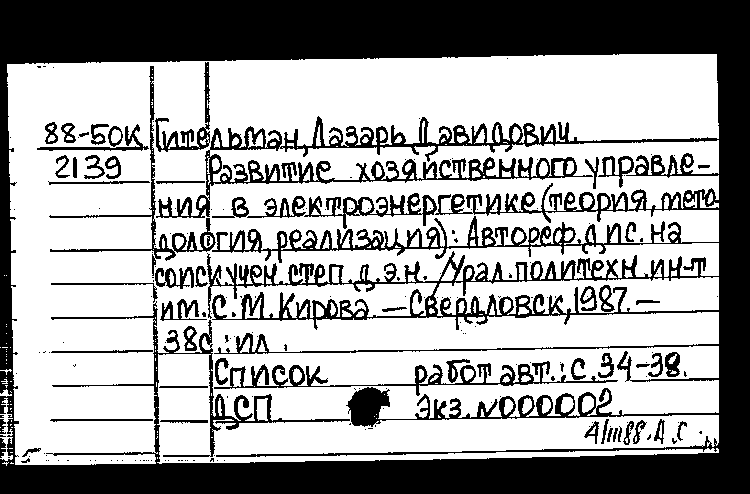 88-5ОК Гительман, Лазарь Давидович.
2139 Развитие хозяйственного управле-
ния в электроэнергетике (теория, мето-
дология, реализация): Автореф. дис. на
соиск. учен. степ. д.э.н. / Урал. политехн. ин-т
им. С. М. Кирова. — Свердловск, 1987. —
38с.: ил.
Список работ авт.: с. 34-38.
ДСП. Экз. N000002.
4/III88. А.С.